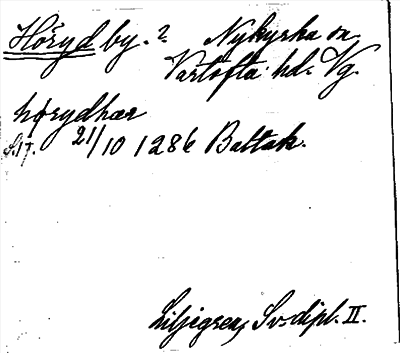 Höryd by. ? Nykyrka sn.
Vartofta hd. Vg.
hørydhær
S.17. 21/10 1286 Baltak.
Liljegren, Sv. dipl. II.